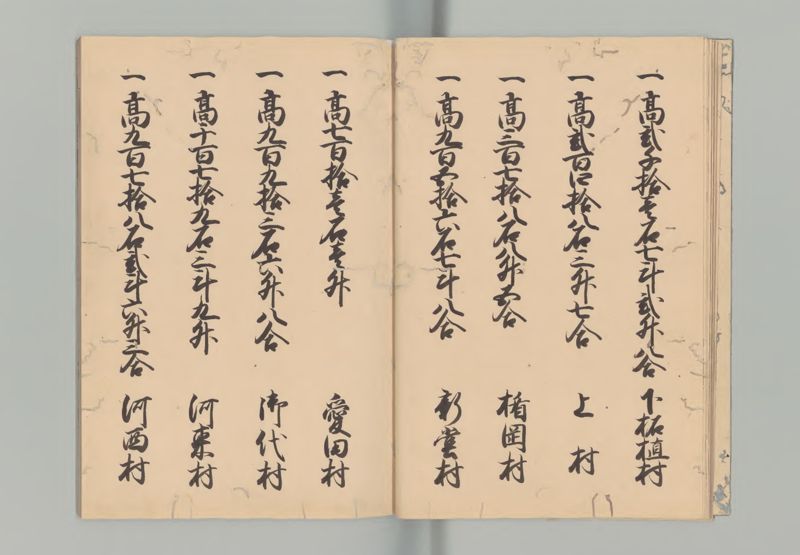 一高弐千拾壱石七斗弐升八合 下柘植村
一高弐百四拾八石三升七合 上村
一高三百七拾八石八升五合 楯岡村
一高九百五拾六石七斗八合 新堂村
一高七百拾壱石壱升 愛田村
一高九百九拾三石六升八合 御代村
一高千百七拾九石三斗九升 河東村
一高九百七拾八石弐斗六升三合 河西村